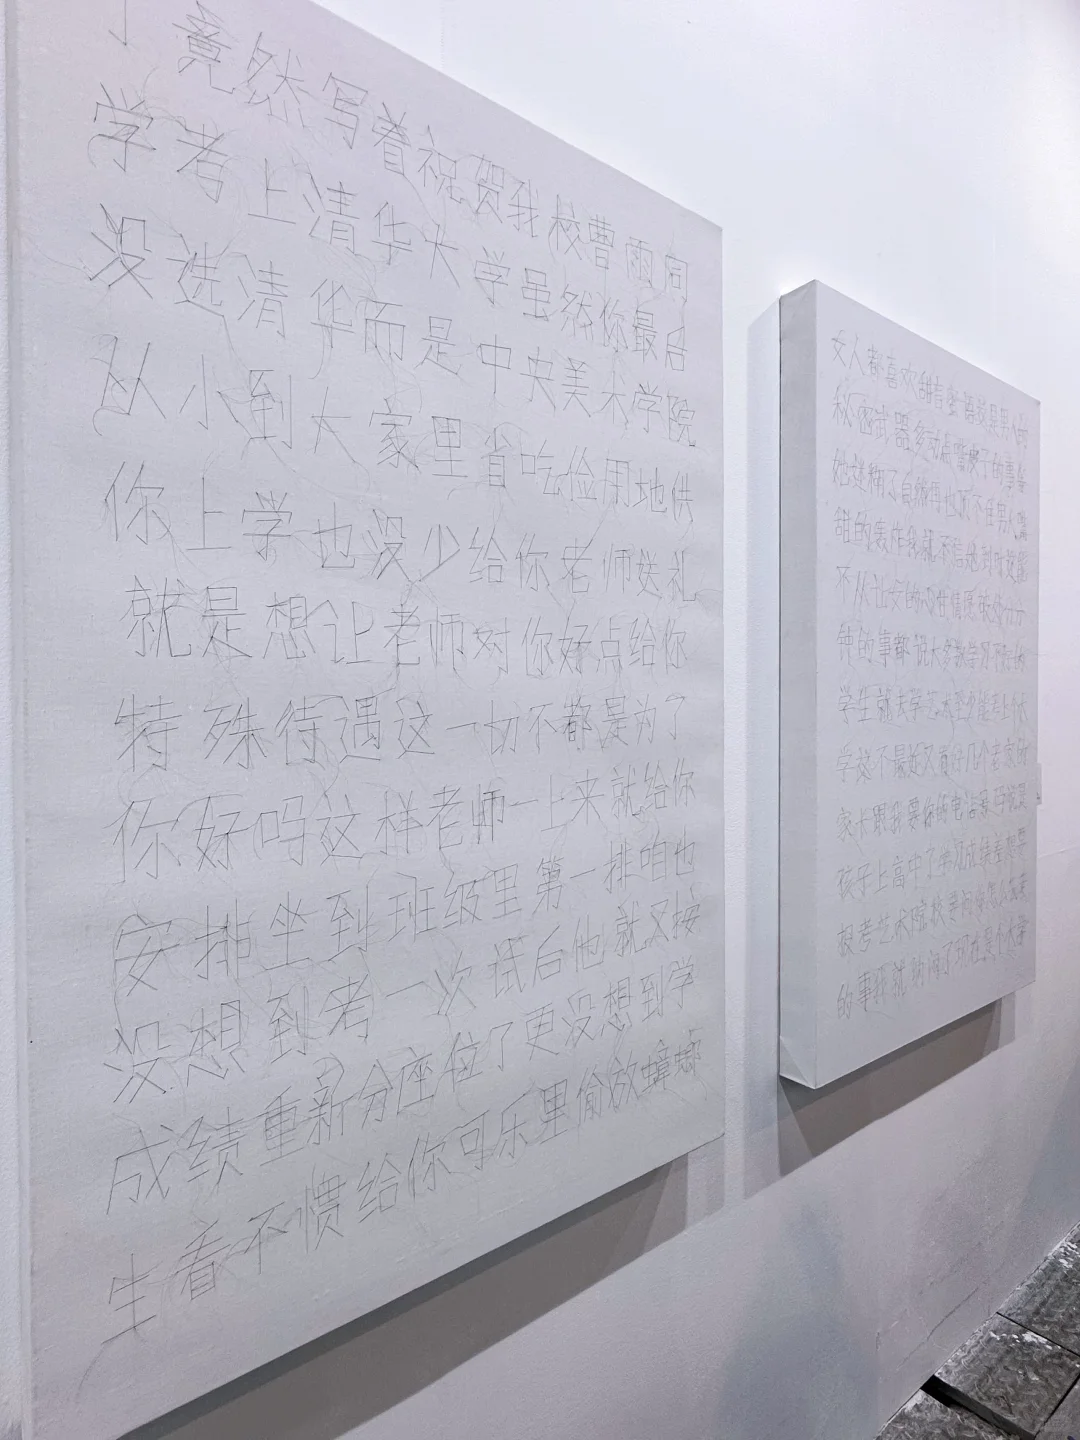 竟然写着祝贺我校曹雨同
学考上清华大学虽然你最后
没选清华而是中央美术学院
从小到大家里省吃俭用地供
你上学也没少给你老师送礼
就是想让老师对你好点给你
特殊待遇这一切不都是为了
你好吗这样老师一上来就给你
安排坐到班级里第一排咱也
没想到考一次试后他就又按
成绩重新分座位了更没想到学
生看不惯给你可乐里偷放蟑螂
女人都喜欢甜言蜜语就是男人的
秘密武器
她迷糊了自然再也顶不住男人嘴
甜的轰炸我就不信
不从
钟的事都说大多数学习不好的
学生就去学艺术至少能考上个大
学这不最近又有好几个老家的
家长跟我要你的电话号码说是
孩子上高中了学习成绩差想要
报考艺术院校要问你怎么
的事我就纳闷了现在是个大学